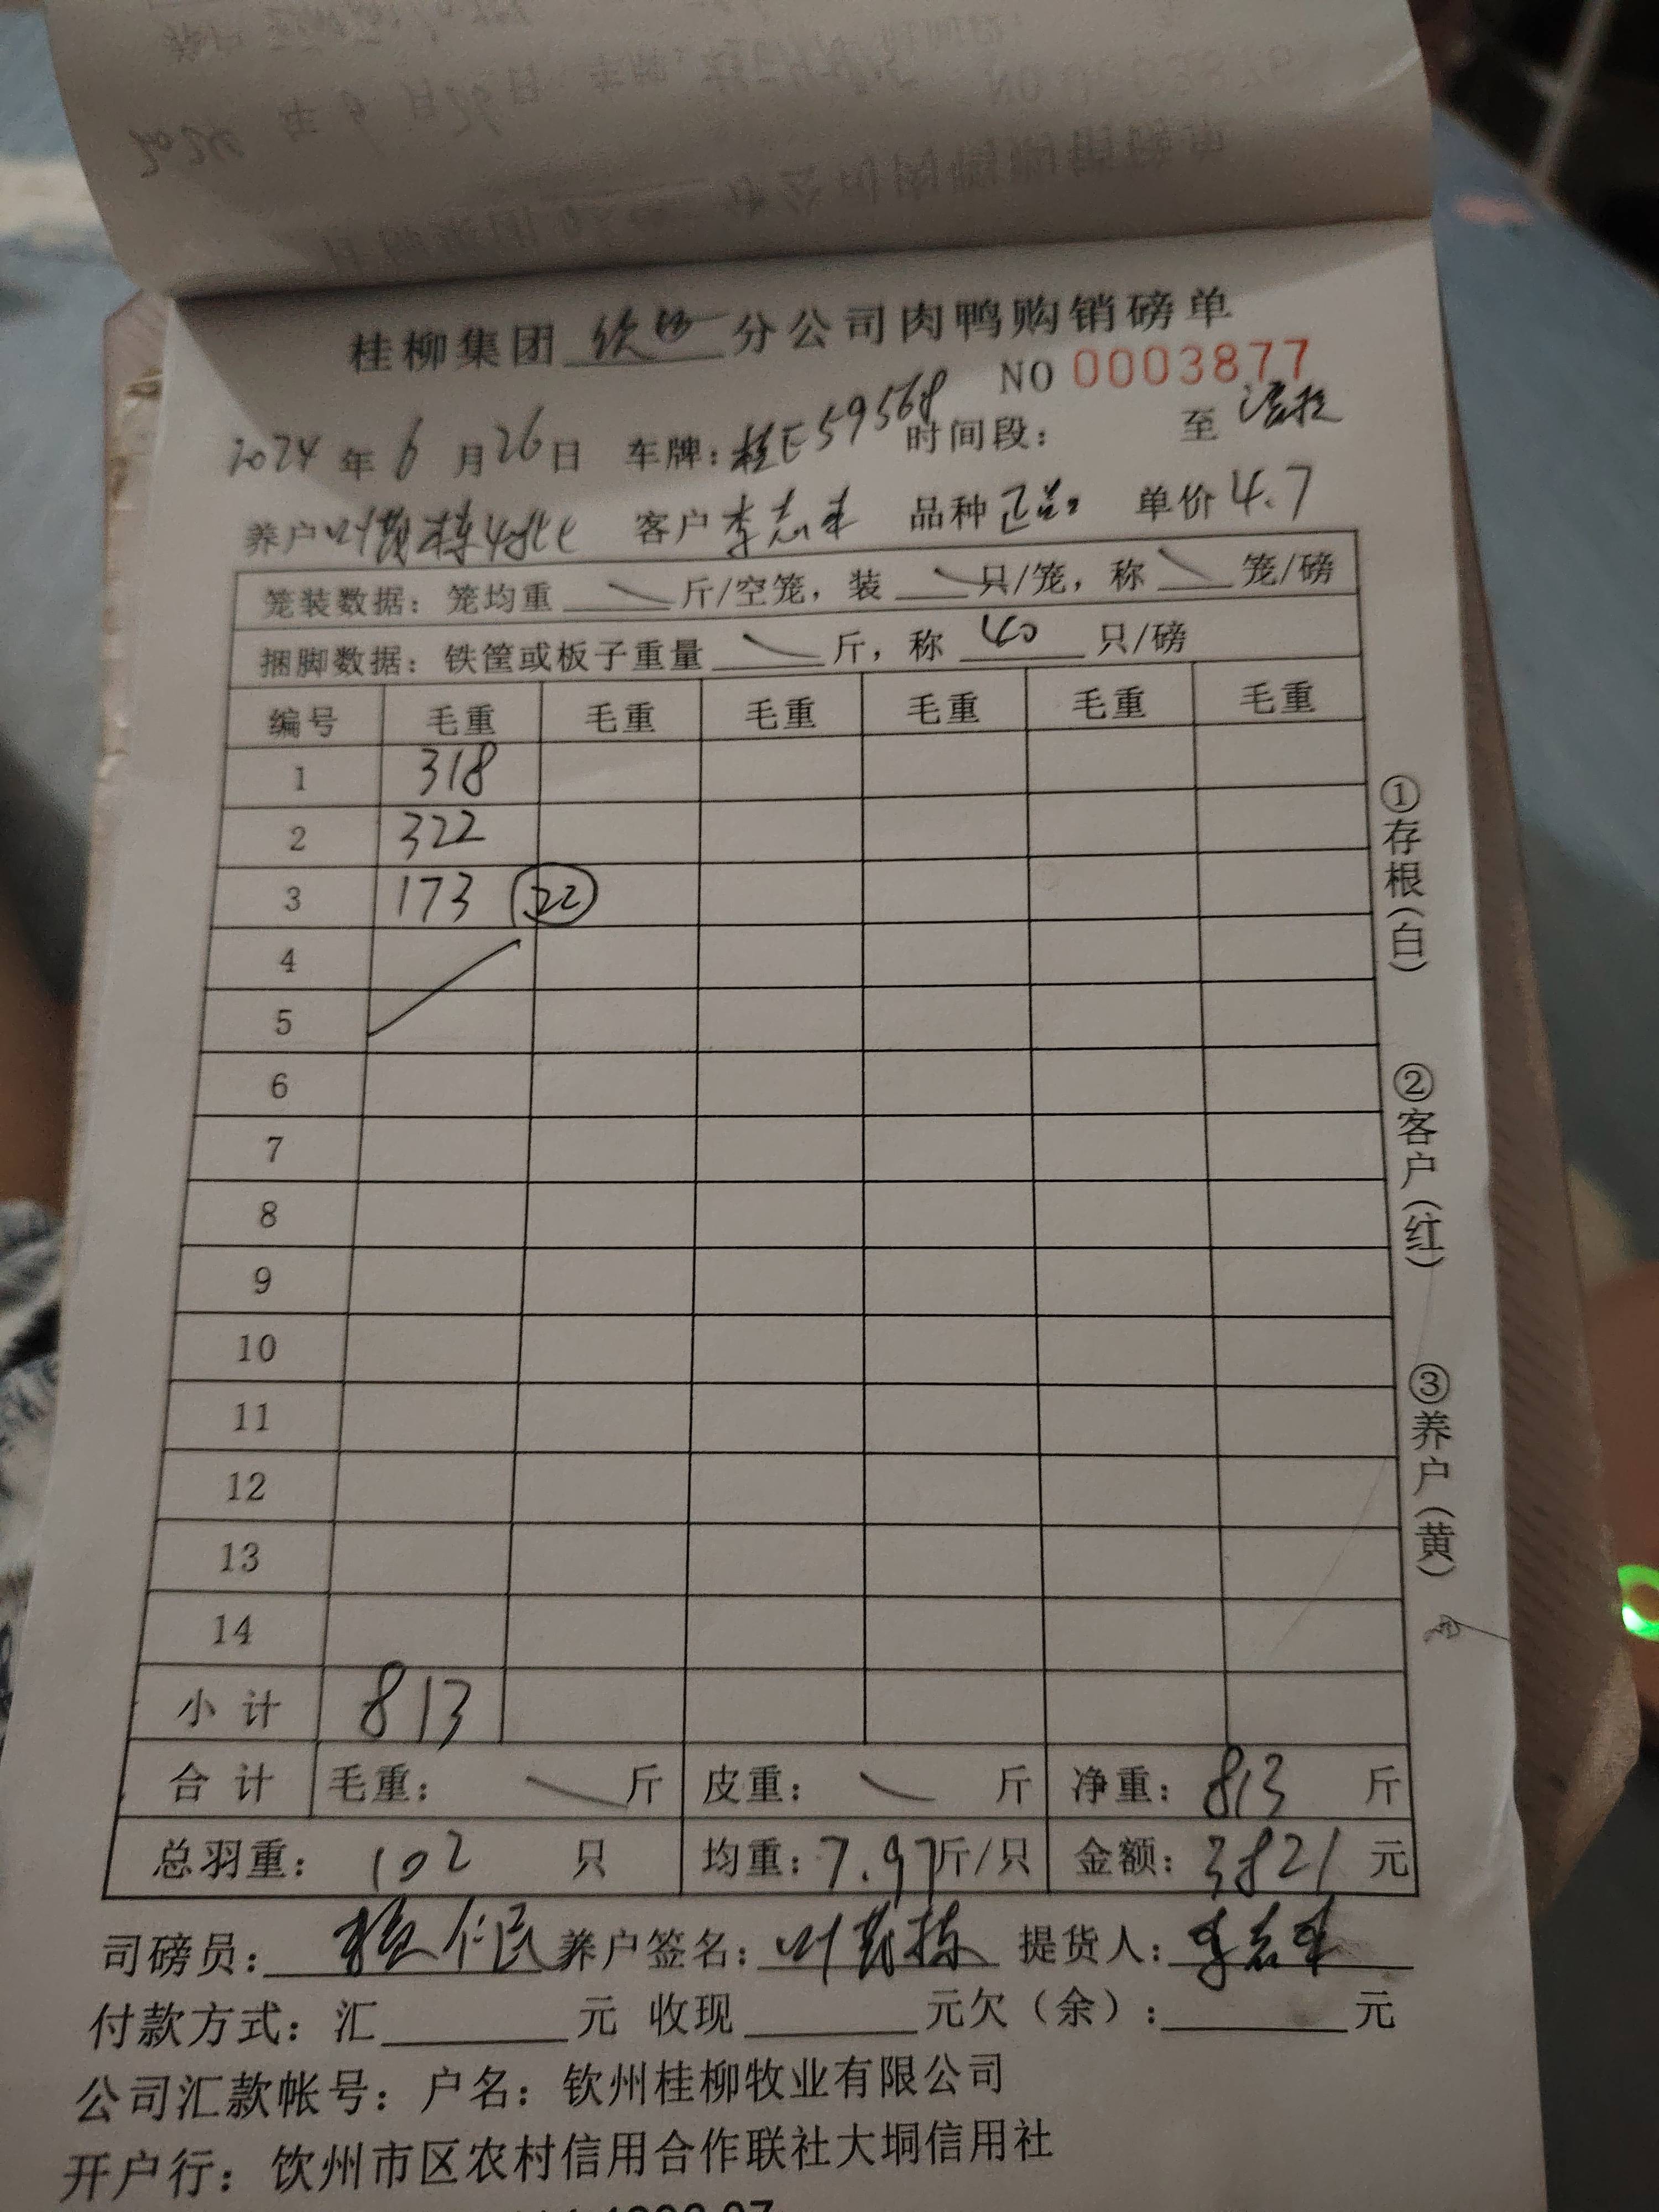 桂柳集团 钦州 分公司肉鸭购销磅单
NO 0003877
2024 年 6 月 26 日 车牌：桂E59568 时间段： 至
养户 叶 栋 客户 李志 品种 正品 单价 4.7
笼装数据：笼均重 斤/空笼，装 只/笼，称 笼/磅
捆脚数据：铁筐或板子重量 斤，称 40 只/磅
编号 毛重 毛重 毛重 毛重 毛重 毛重
1 318
2 322
3 173 22
4
5
6
7
8
9
10
11
12
13
14
小计 813
合计 毛重： 斤 皮重： 斤 净重：813 斤
总羽重：102 只 均重：7.97斤/只 金额：3821 元
司磅员： 仁民 养户签名：叶 栋 提货人：李志
付款方式：汇 元 收现 元欠（余）： 元
公司汇款帐号：户名：钦州桂柳牧业有限公司
开户行：钦州市区农村信用合作联社大垌信用社
①存根（白）
②客户（红）
③养户（黄）